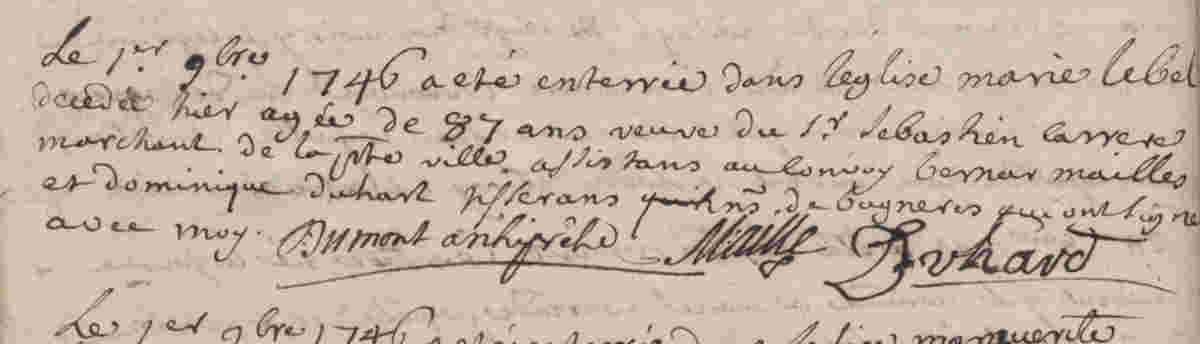 Le 1er. 9bre 1746 a eté enterrée dans l'église marie lebel
decedée hier agée de 87 ans veuve du Sr. Sebastien Carrere
marchant. de la pnte ville. assistans au convoy bernar mailles
et dominique duhart tisserans de bagneres qui ont signé
avec moy. Dumont archiprêtre Maille Duhard
Le 1er 9bre 1746 a eté enterrée dans l'eglise marguerite